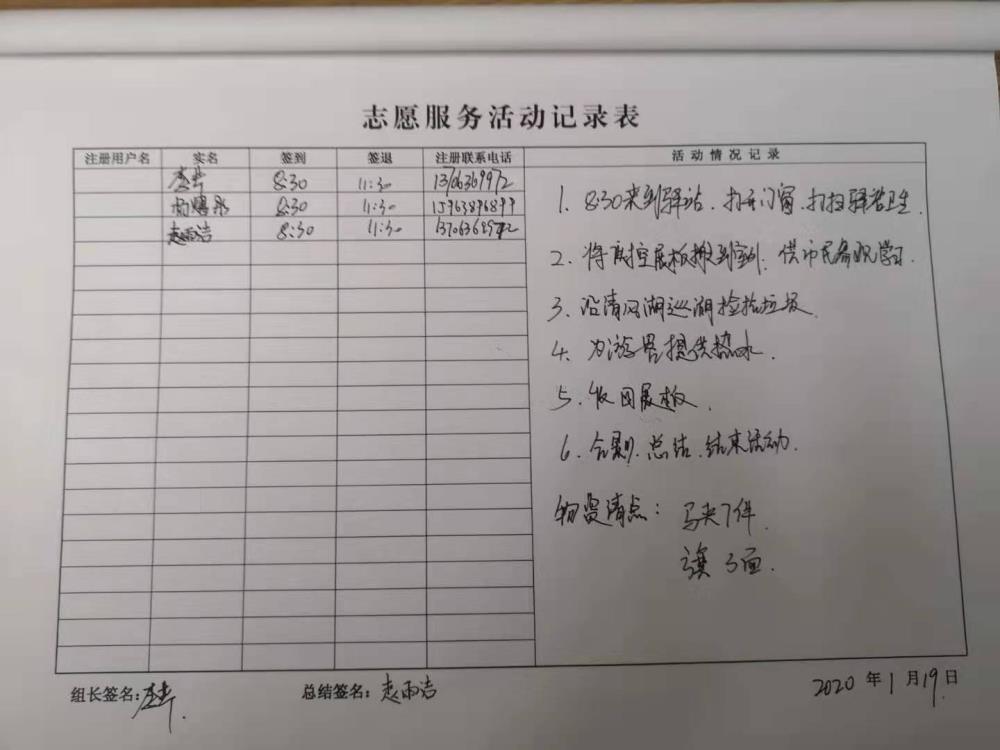 志愿服务活动记录表
注册用户名 实名 签到 签退 注册联系电话 活动情况记录
8:30 11:30
8:30 11:30
赵雨洁 8:30 11:30
1. 8:30来到驿站、打开门窗、打扫驿站卫生
2. 将 展板搬到室外、供市民参观学习.
3. 沿清风湖巡湖捡拾垃圾.
4. 为游客提供热水.
5. 收回展板.
6. 合影、总结、结束活动.
物资清点: 马夹7件
旗3面.
组长签名: 总结签名: 赵雨洁 2020年1月19日